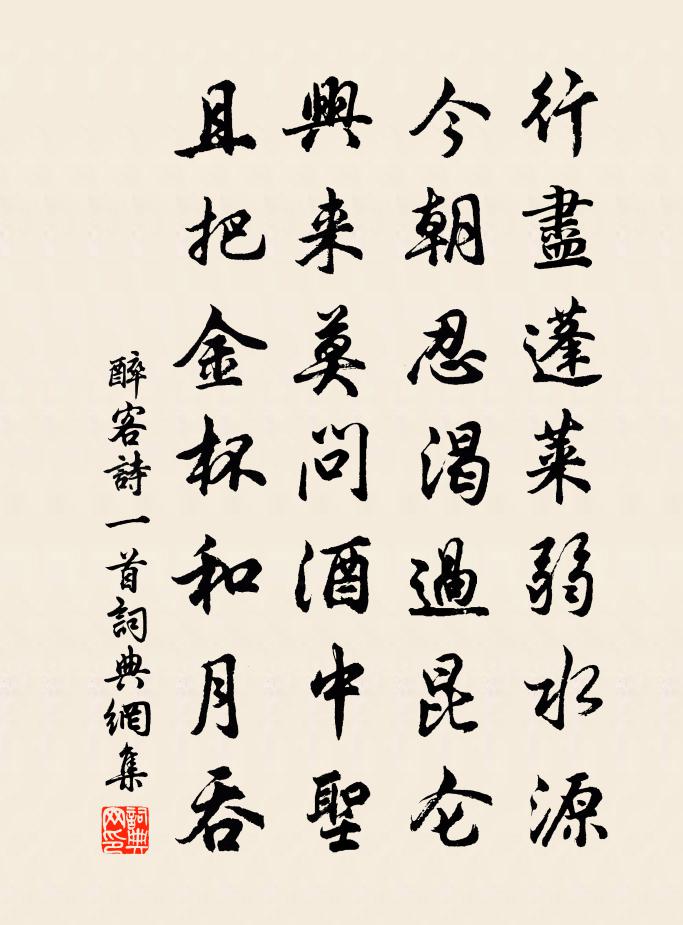 行盡蓬萊弱水源
今朝忍渴過昆仑
興来莫問酒中聖
且把金杯和月吞
醉客詩一首詞典網集
詞典网印